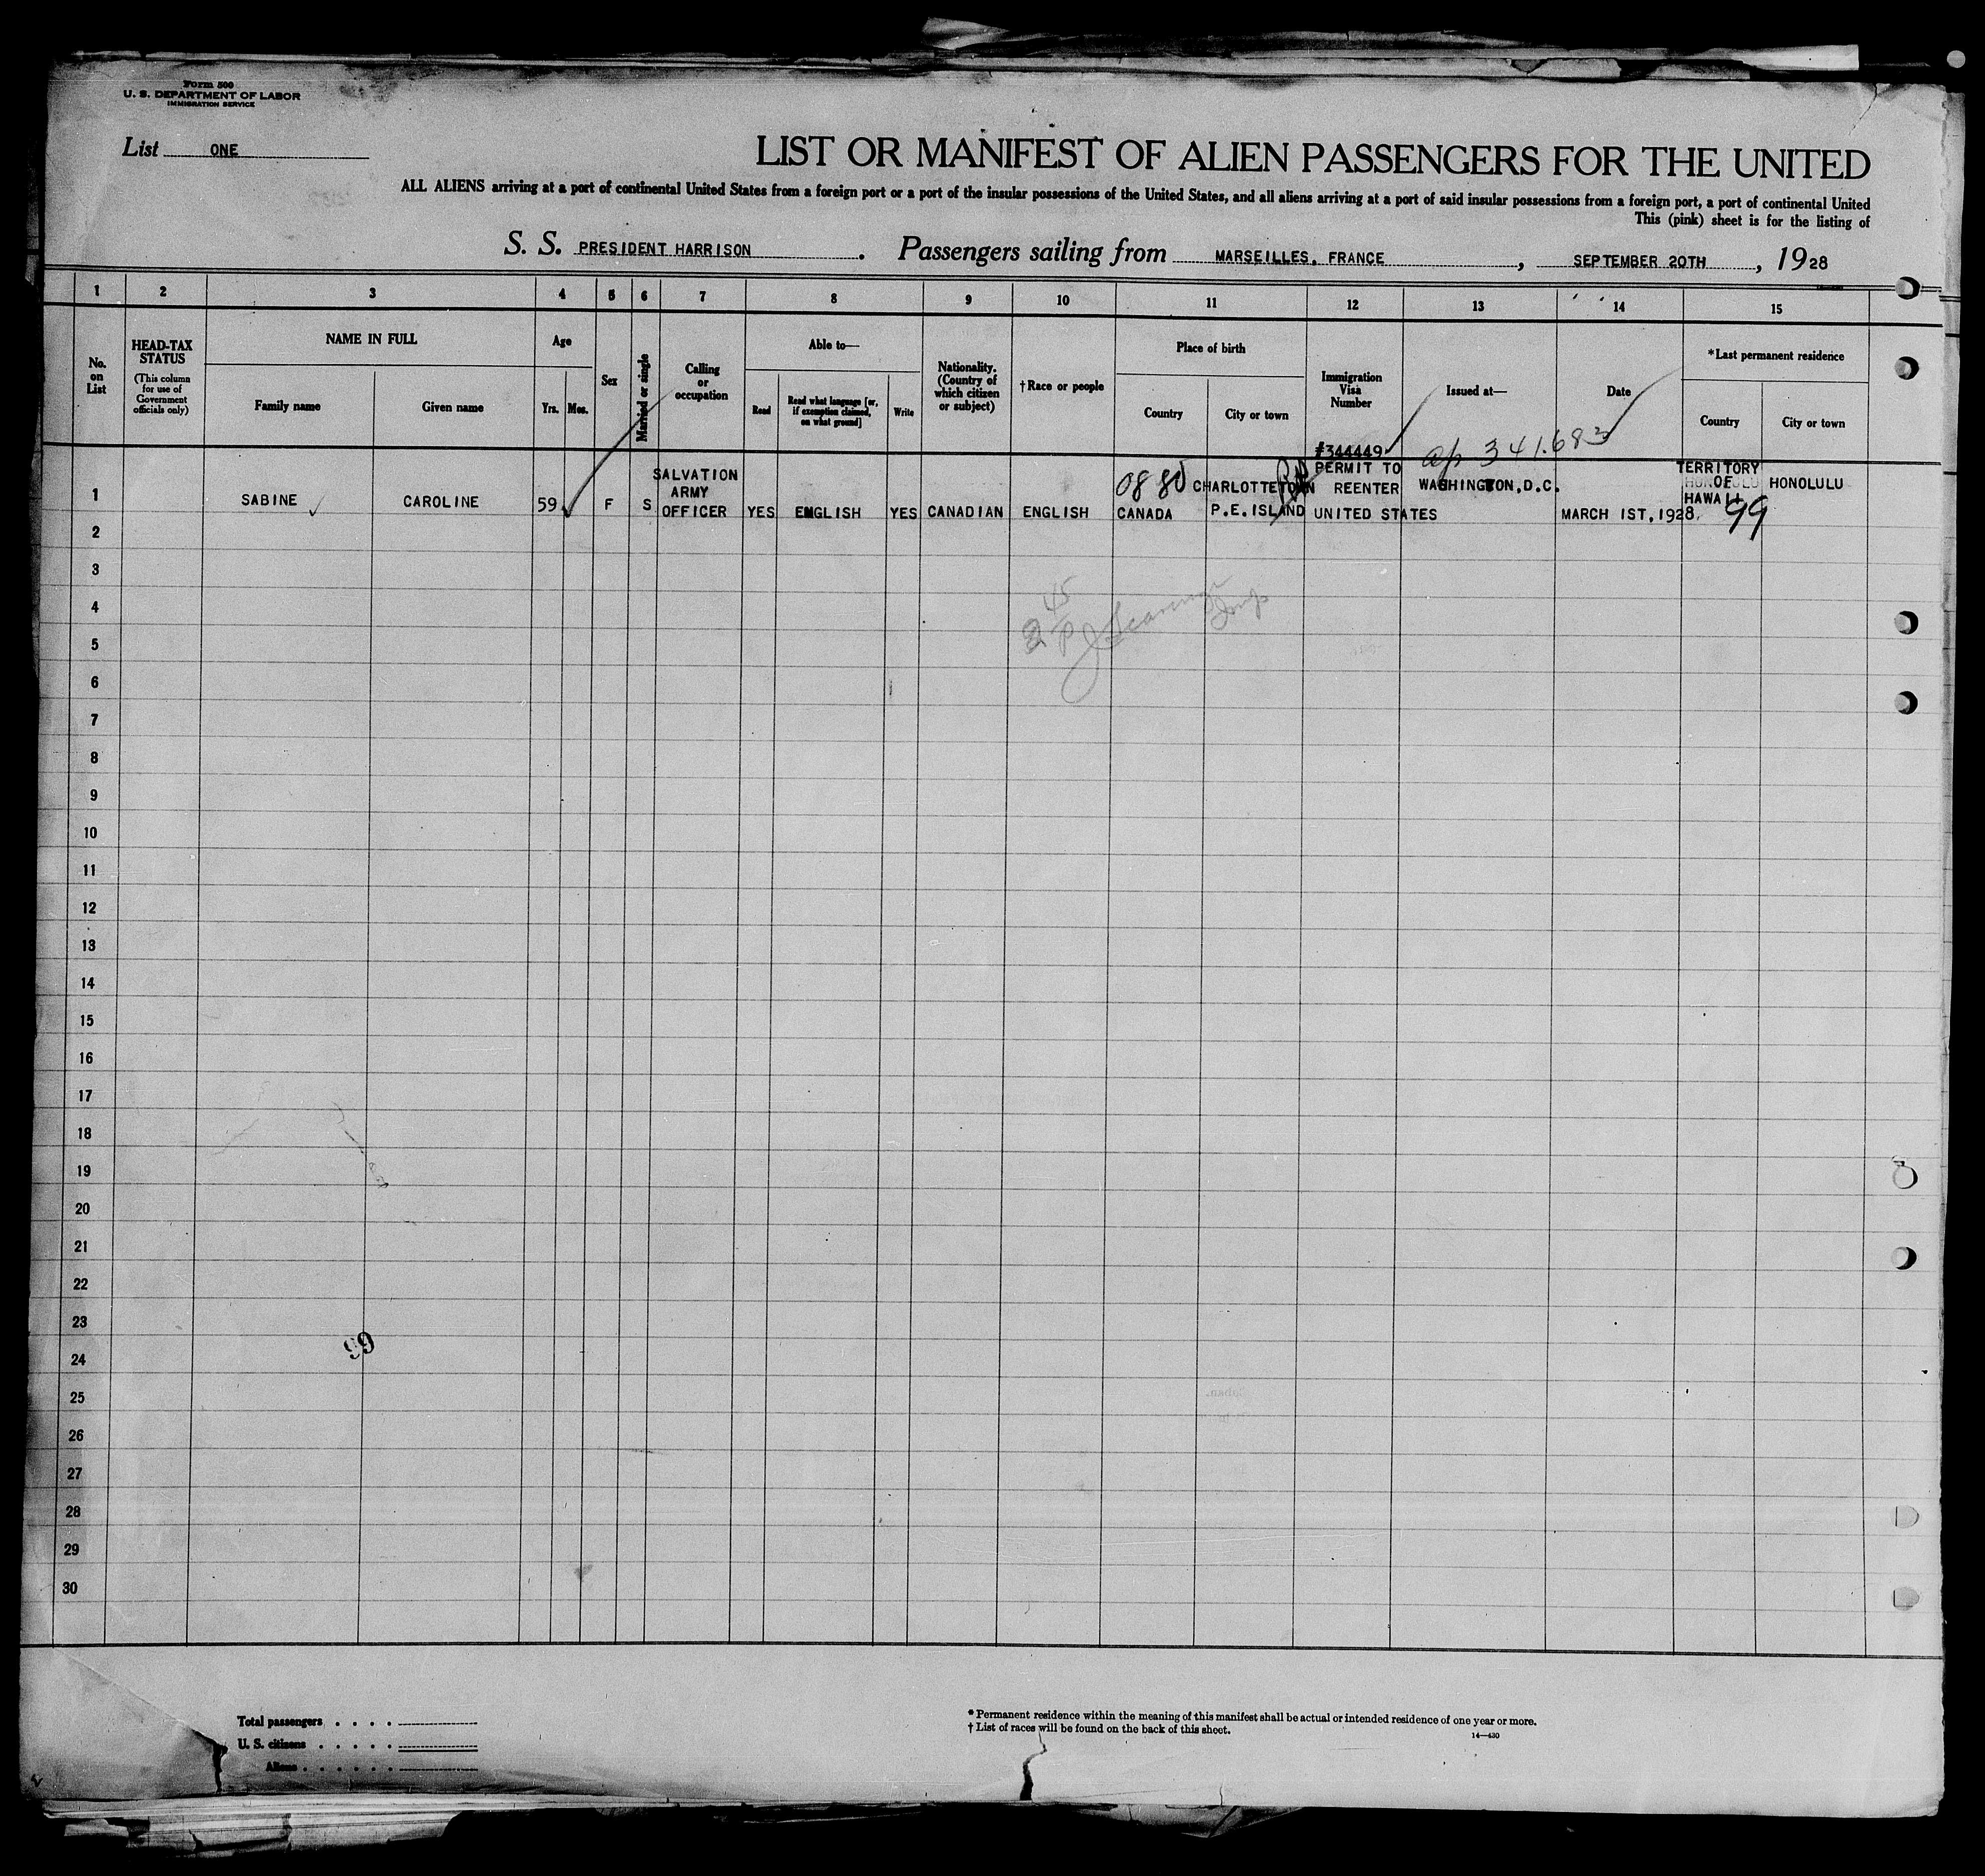 Form 500
U. S. DEPARTMENT OF LABOR
IMMIGRATION SERVICE
List ONE
LIST OR MANIFEST OF ALIEN PASSENGERS FOR THE UNITED
ALL ALIENS arriving at a port of continental United States from a foreign port or a port of the insular possessions of the United States, and all aliens arriving at a port of said insular possessions from a foreign port, a port of continental United
This (pink) sheet is for the listing of
S. S. PRESIDENT HARRISON. Passengers sailing from MARSEILLES, FRANCE, SEPTEMBER 20TH, 1928
1 2 3 4 5 6 7 8 9 10 11 12 13 14 15
No. on List
HEAD-TAX STATUS
(This column for use of Government officials only)
NAME IN FULL
Family name
Given name
Age
Yrs. Mos.
Sex
Married or single
Calling or occupation
Able to—
Read
Read what language [or, if exemption claimed, on what ground]
Write
Nationality. (Country of which citizen or subject)
†Race or people
Place of birth
Country
City or town
Immigration Visa Number
Issued at—
Date
*Last permanent residence
Country
City or town
1 SABINE CAROLINE 59 F S SALVATION ARMY OFFICER YES ENGLISH YES CANADIAN ENGLISH 0880 CANADA CHARLOTTETOWN P.E.ISLAND #344449 PERMIT TO REENTER UNITED STATES ap 341.683 WASHINGTON,D.C. MARCH 1ST,1928. TERRITORY OF HAWAII 99 HONOLULU
2
3
4
45
5
6
7
8
9
10
11
12
13
14
15
16
17
18
19
20
21
22
23
99
24
25
26
27
28
29
30
Total passengers . . . .
U. S. citizens . . . . .
Aliens . . . . . .
* Permanent residence within the meaning of this manifest shall be actual or intended residence of one year or more.
† List of races will be found on the back of this sheet.
14—430